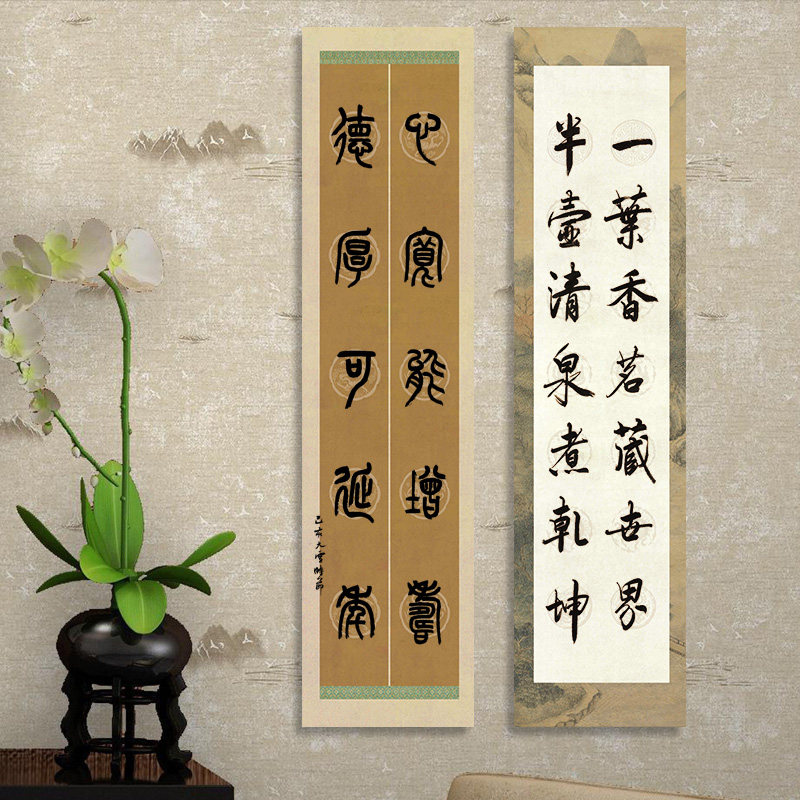 一葉香茗藏世界
半壺清泉煮乾坤
心寬能增壽
德厚可延年
己亥大雪時節